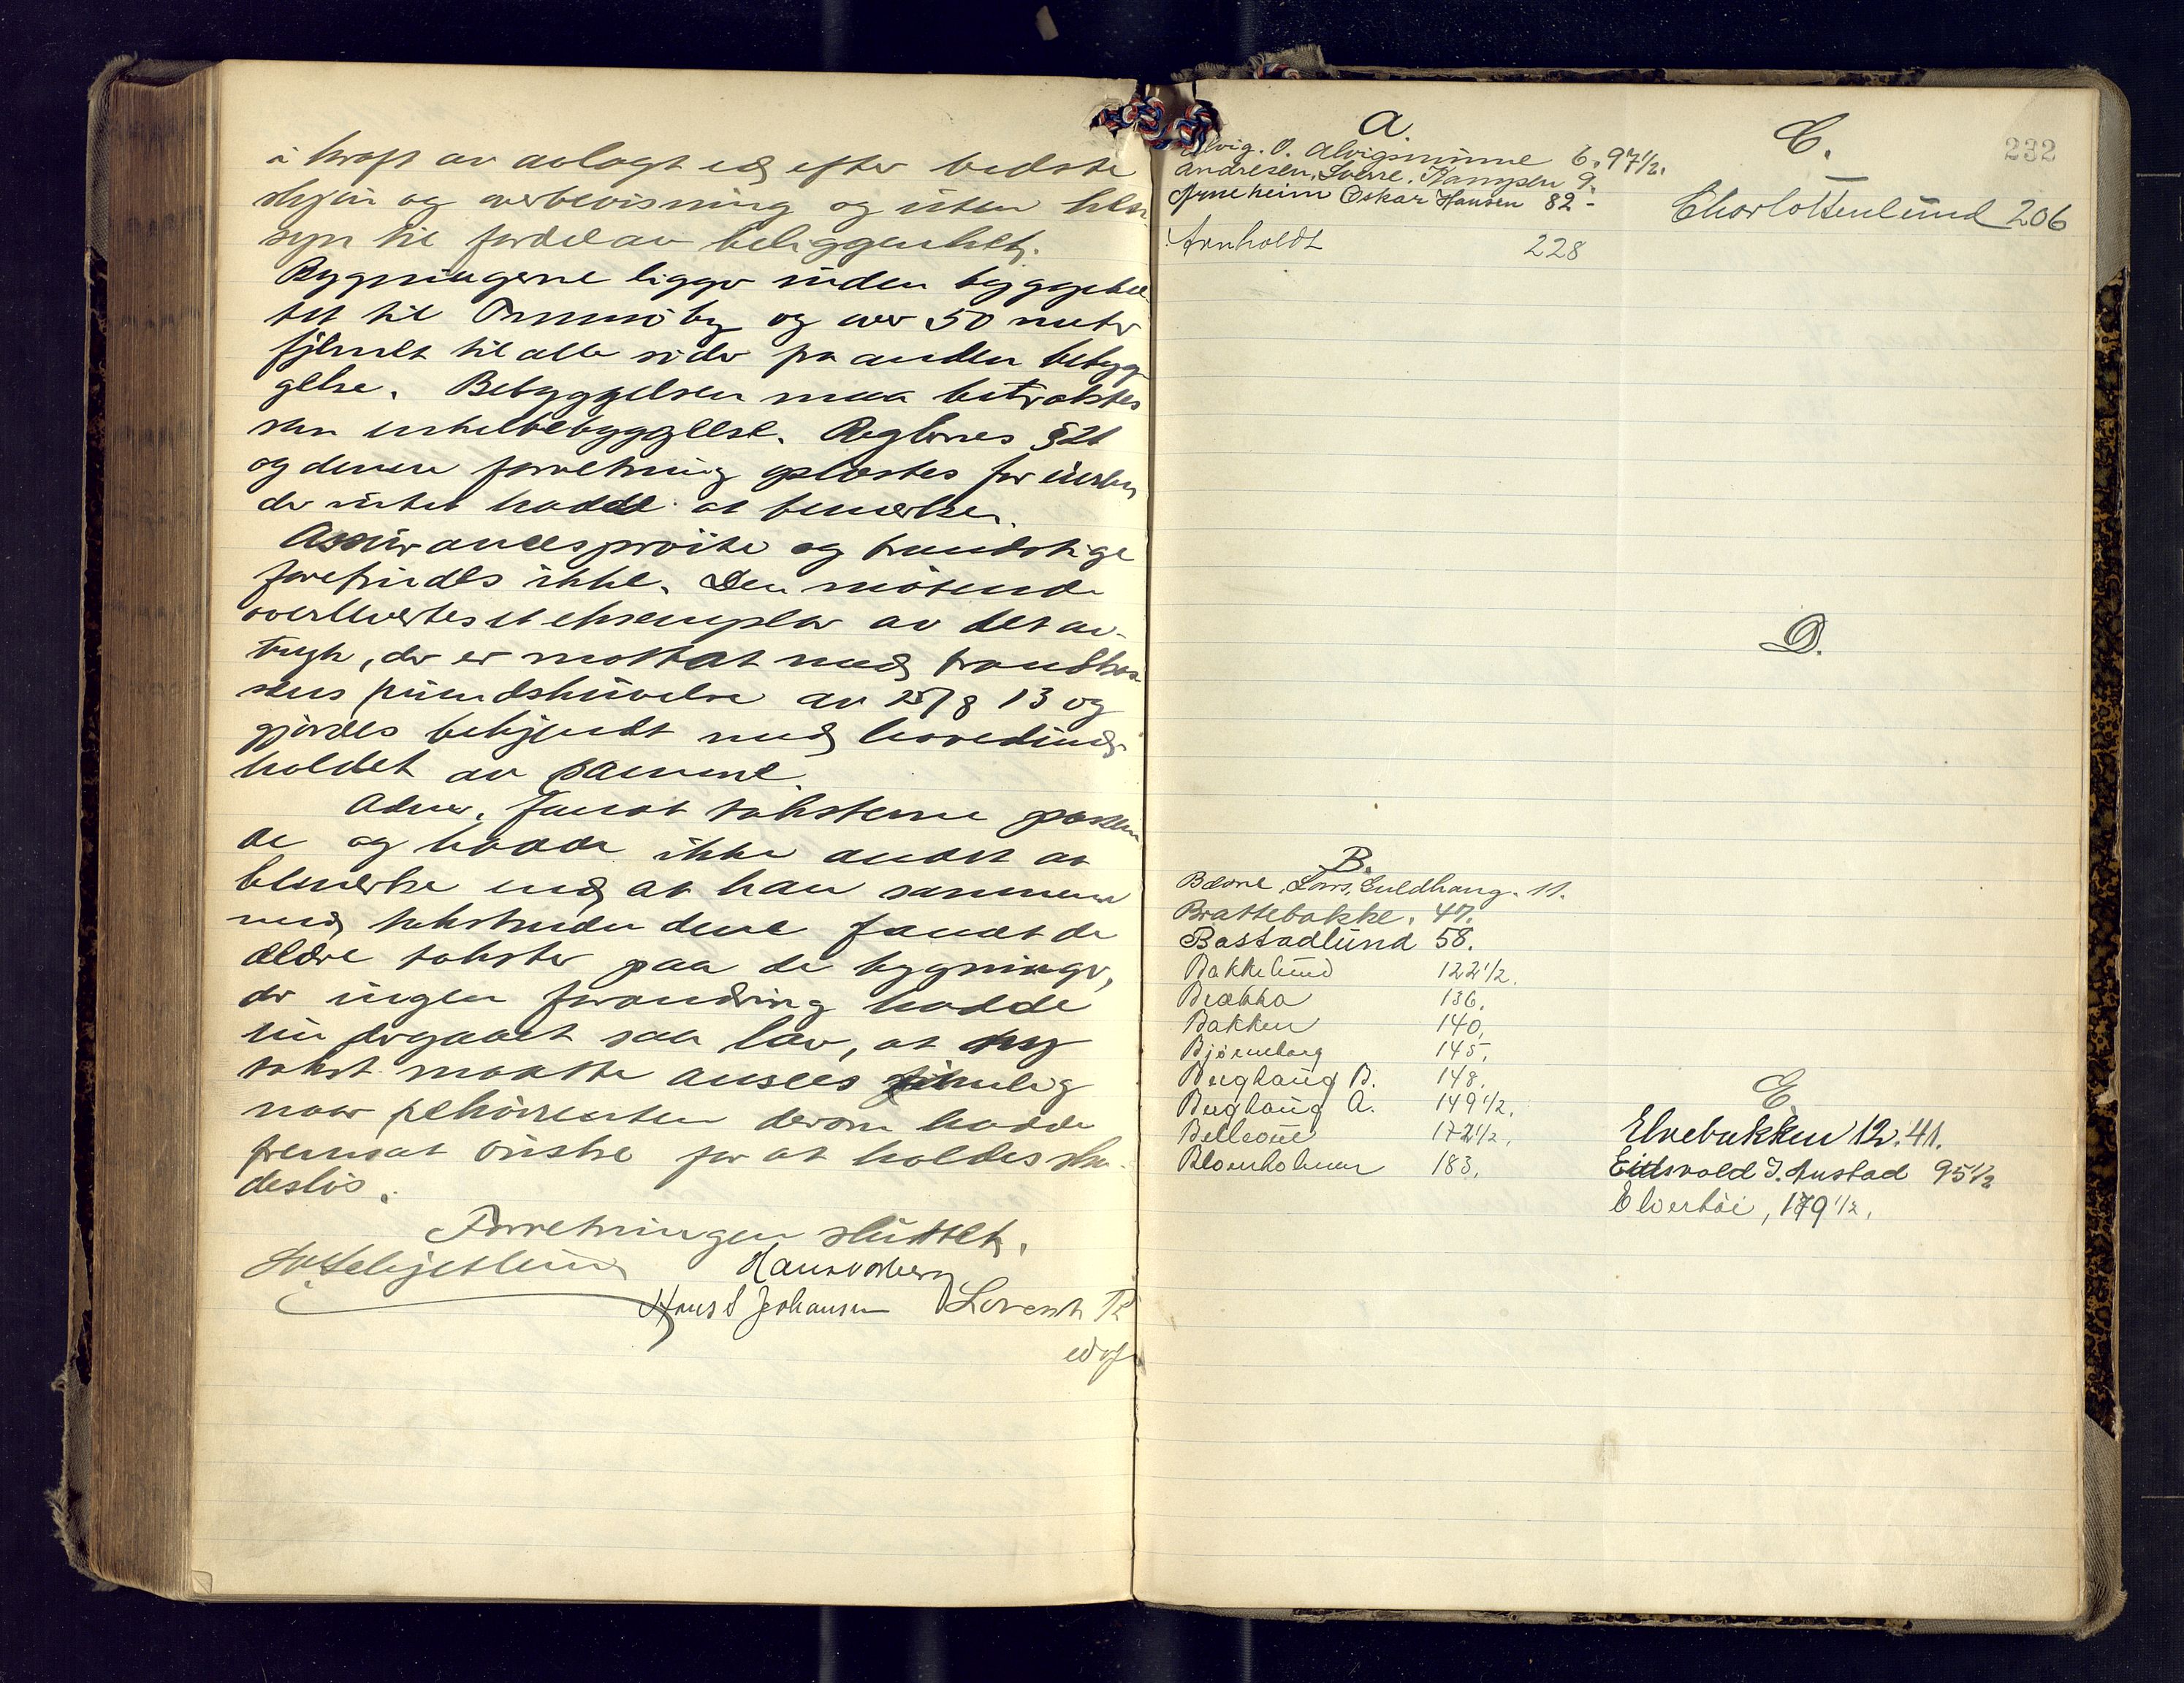 i kraft av avlagt ed efter bedste
skjøn og overbevisning og uten hen
syn til fordel av beliggenhet.
Bygningerne ligger inden byggebel
tet til by og over 50 meter
fjernet til alle sider fra anden bebyg
gelse. Bebyggelsen maa betraktes
som enkeltbebyggelse. Reglernes § 21
og denne forretning oplæstes for
der intet hadde at bemerke.
Assurancesprøite og brandstige
forefindes ikke. Den møtende
overlevertes et eksemplar av det av-
tryk, der er mottat med brandkas
sens rundskrivelse av 25/8 13 og
gjordes bekjendt med hovedind
holdet av samme.
Adm. fandt taksterne passen
de og hadde ikke andet at
bemerke end at han sammen
med fandt de
ældre takster paa de bygninger,
der ingen forandring hadde
undergaaet saa lav, at ny
takst maatte ansees
naar rekvirenten derom hadde
fremsat ønske for at holdes ska-
desløs.
Forretningen sluttet.
Hans Johansen Lorents
edsf.
232
A.
Alvig. O. Alvigsminne 6. 97½.
Andresen, Sverre. Kampen 9.
Arneheim Oskar Hansen 82 -
Arnholdt 228
B.
Bævre, Lars, Guldhaug. 11.
Brattebakke. 47.
Bastadlund 58.
Bakkelund 122½.
Brækka 136.
Bakken 140.
Bjørneborg 145.
Berghaug B. 148.
Berghaug A. 149½.
Bellevue 172½.
Blomholmen 183.
C.
Charlottenlund 206
D.
E.
Elvebakken 12. 41.
Eidsvold J. Austad 95½
Elverhøi, 179½.